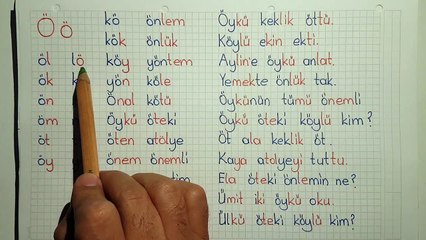 Ö ö kö önlem Öykü keklik öttü.
kök önlük Köylü ekin ekti.
öl lö köy yöntem Aylin'e öykü anlat.
ök yön köle Yemekte önlük tak.
ön Önal kötü Öykünün tümü önemli
öm Öykü öteki Öykü öteki köylü kim?
öt öten atölye Öt ala keklik öt.
öy önem önemli Kaya atölyeyi tuttu.
Ela öteki önlemin ne?
Ümit iki öykü oku.
Ülkü öteki köylü kim?